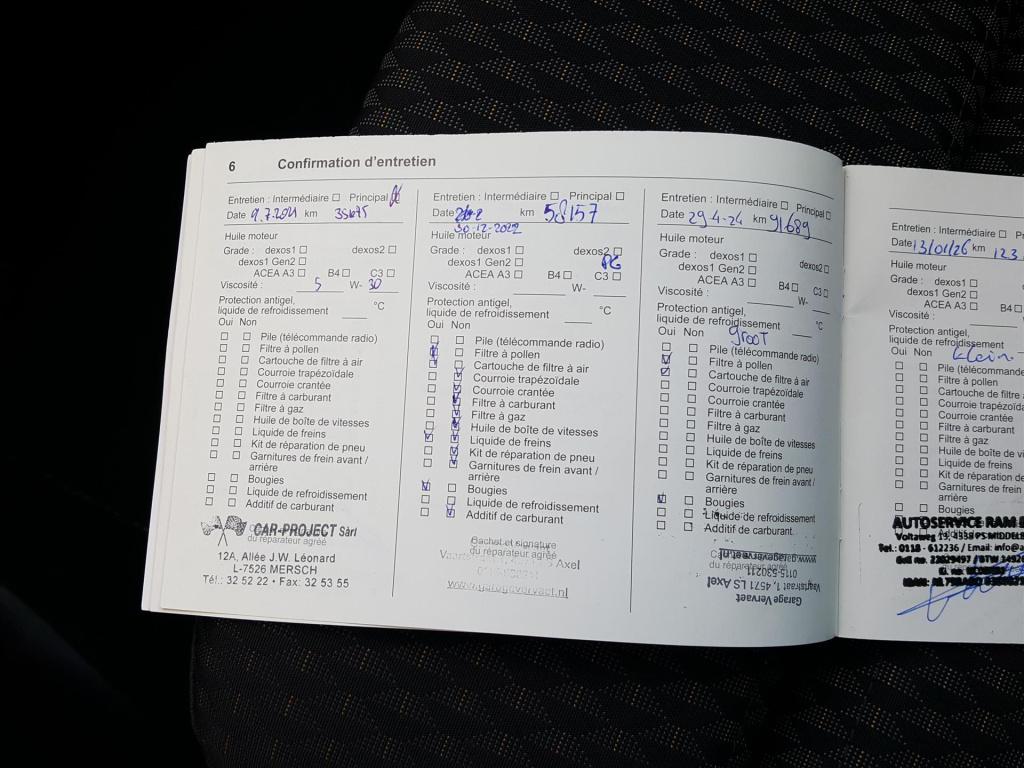 6 Confirmation d'entretien
Entretien : Intermédiaire □ Principal
Date 9.7.2021 km 35675
Huile moteur
Grade : dexos1 □ dexos2 □
dexos1 Gen2 □
ACEA A3 □ B4 □ C3 □
Viscosité : 5 W- 30
Protection antigel,
liquide de refroidissement ____ °C
Oui Non
□ □ Pile (télécommande radio)
□ □ Filtre à pollen
□ □ Cartouche de filtre à air
□ □ Courroie trapézoïdale
□ □ Courroie crantée
□ □ Filtre à carburant
□ □ Filtre à gaz
□ □ Huile de boîte de vitesses
□ □ Liquide de freins
□ □ Kit de réparation de pneu
□ □ Garnitures de frein avant /
arrière
□ □ Bougies
□ □ Liquide de refroidissement
□ □ Additif de carburant
CAR-PROJECT Sàrl
du réparateur agréé
12A, Allée J.W. Léonard
L-7526 MERSCH
Tél.: 32 52 22 • Fax: 32 53 55
Entretien : Intermédiaire □ Principal □
Date km 58157
30-12-2022
Huile moteur
Grade : dexos1 □ dexos2 □
dexos1 Gen2 □
ACEA A3 □ B4 □ C3 □
Viscosité : W-
Protection antigel,
liquide de refroidissement ____ °C
Oui Non
Pile (télécommande radio)
Filtre à pollen
Cartouche de filtre à air
Courroie trapézoïdale
Courroie crantée
Filtre à carburant
Filtre à gaz
Huile de boîte de vitesses
Liquide de freins
Kit de réparation de pneu
Garnitures de frein avant /
arrière
Bougies
Liquide de refroidissement
Additif de carburant
Cachet et signature
du réparateur agréé
Axel
www.garagevervaet.nl
Entretien : Intermédiaire □ Principal □
Date 29-4-24 km 91689
Huile moteur
Grade : dexos1 □ dexos2 □
dexos1 Gen2 □
ACEA A3 □ B4 □ C3 □
Viscosité : W-
Protection antigel,
liquide de refroidissement ____ °C
Oui Non groot
Pile (télécommande radio)
Filtre à pollen
Cartouche de filtre à air
Courroie trapézoïdale
Courroie crantée
Filtre à carburant
Filtre à gaz
Huile de boîte de vitesses
Liquide de freins
Kit de réparation de pneu
Garnitures de frein avant /
arrière
Bougies
Liquide de refroidissement
Additif de carburant
du réparateur agréé
Garage Vervaet
Vaartstraat 1, 4571 LS Axel
0115-530211
www.garagevervaet.nl
Entretien : Intermédiaire □
Date 13/01/26 km 123
Huile moteur
Grade : dexos1 □
dexos1 Gen2 □
ACEA A3 □ B4 □
Viscosité :
Protection antigel,
liquide de refroidissement
Oui Non klein
□ □ Pile (télécommande
□ □ Filtre à pollen
□ □ Cartouche de filtre
□ □ Courroie trapézoïda
□ □ Courroie crantée
□ □ Filtre à carburant
□ □ Filtre à gaz
□ □ Huile de boîte de vi
□ □ Liquide de freins
□ □ Kit de réparation de
□ □ Garnitures de frein
arrière
□ □ Bougies
AUTOSERVICE RAM
Voltaweg 13, 4338 PS MIDDELB
Tel.: 0118 - 612236 / Email: info@a